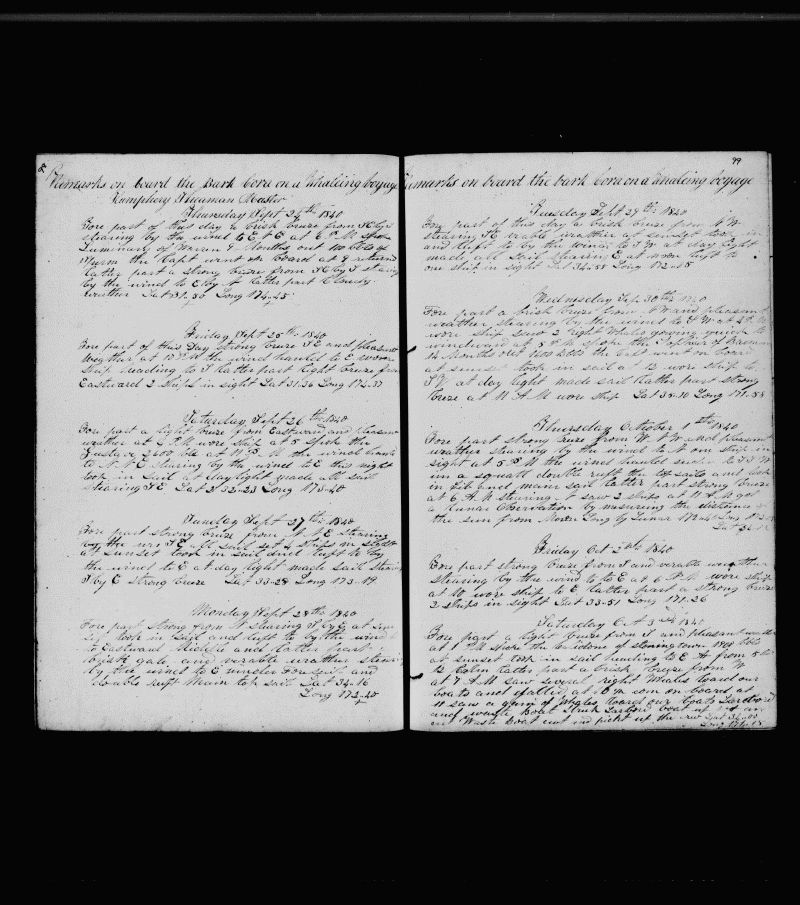 Remarks on board the Bark Cora on a Whaleing voyage
Humphery Seaman Master
Thursday Sept 24th 1840
Fore part of this day a brisk breze from S E by S
stearing by the wind to E & E at 6 P.M. spoke
Luminary of Warren 9 Months out 110 bbls of
Sperm the Capt went on board at 8 returned
latter part a strong breze from S E by S stearing
by the wind to E by N latter part Cloudy
weather Lat 31.50 Long 174.45
Friday Sept 25th 1840
Fore part of this Day strong breze S E and pleasant
weather at 12 P.M the wind hauled to E wore
ship heading to S latter part light breze from
Eastward 2 ships in sight Lat 31.36 Long 174.37
Saturday Sept 26th 1840
Fore part a light breze from Eastward and pleasant
weather at 4 P.M wore ship at 5 spoke the
Gustave 2400 bbls at 11 P.M the wind hauled
to N N E stearing by the wind to E this night
took in sail at daylight made all sail
stearing S E Lat 32-23 Long 173-40
Sunday Sept 27th 1840
Fore part strong breze from N N E stearing
by the wind S E all sail set 4 ships in sight
at sunset took in sail and luft to by
the wind to E at day light made sail stearing
S by E strong breze Lat 33-28 Long 173-19
Monday Sept 28th 1840
Fore part strong from N stearing S by E at sun
set took in sail and luft to by the wind
to Eastward Middle and latter part
brisk gale and verable weather stearing
by the wind to E under Foresail and
double reeft Main top sail Lat 34-16
Long 172-40
99
Remarks on board the bark Cora on a Whaleing voyage
Tuesday Sept 29th 1840
Fore part of this day a brisk breze from N W
stearing S E verable weather at sunset took in
and luft to by the wind to S W at day light
made all sail stearing E at noon luft to
one ship in sight Lat 34-58 Long 172-08
Wednesday Sep 30th 1840
Fore part a brisk breze from N W and pleasant
weather stearing by the wind to S W at 4 P.M
wore ship saw 2 right Whales goving quick to
windward at 5 P.M spoke the
14 Months out 1200 bbls the Capt went on board
at sunset took in sail at 12 wore ship to
S W at day light made sail latter part strong
breze at 11 A.M wore ship Lat 35-10 Long 171-58
Thursday October 1st 1840
Fore part strong breze from W N W and pleasant
weather stearing by the wind to N one ship in
sight at 5 P.M the wind hauled
in a squall double reeft the top sails and took
in jib and main sail latter part strong breze
at 6 A.M stearing N saw 2 ships at 11 A.M got
a Lunar Observation by measuring the distance of
the sun from Moon Long by Lunar
Lat
Friday Oct 2nd 1840
Fore part strong breze from S and verable weather
stearing by the wind to E at 6 P.M wore ship
at 10 wore ship to E latter part a strong breze
2 ships in sight Lat 33-51 Long 171-26
Saturday Oct 3rd 1840
Fore part a light breze from S and pleasant weather
at 1 P.M spoke the of stoningtown 1400 bbls
at sunset took in sail heading to E A from 8 to
12 Calm latter part a brisk breze from W
at 7 A.M saw several right Whales loard our
boats and at 10 came on board at
11 saw a gam of Whales loard our boats Larboard
and waist boat struck Larbord boat
Waist boat cut and pickt up the crew Lat